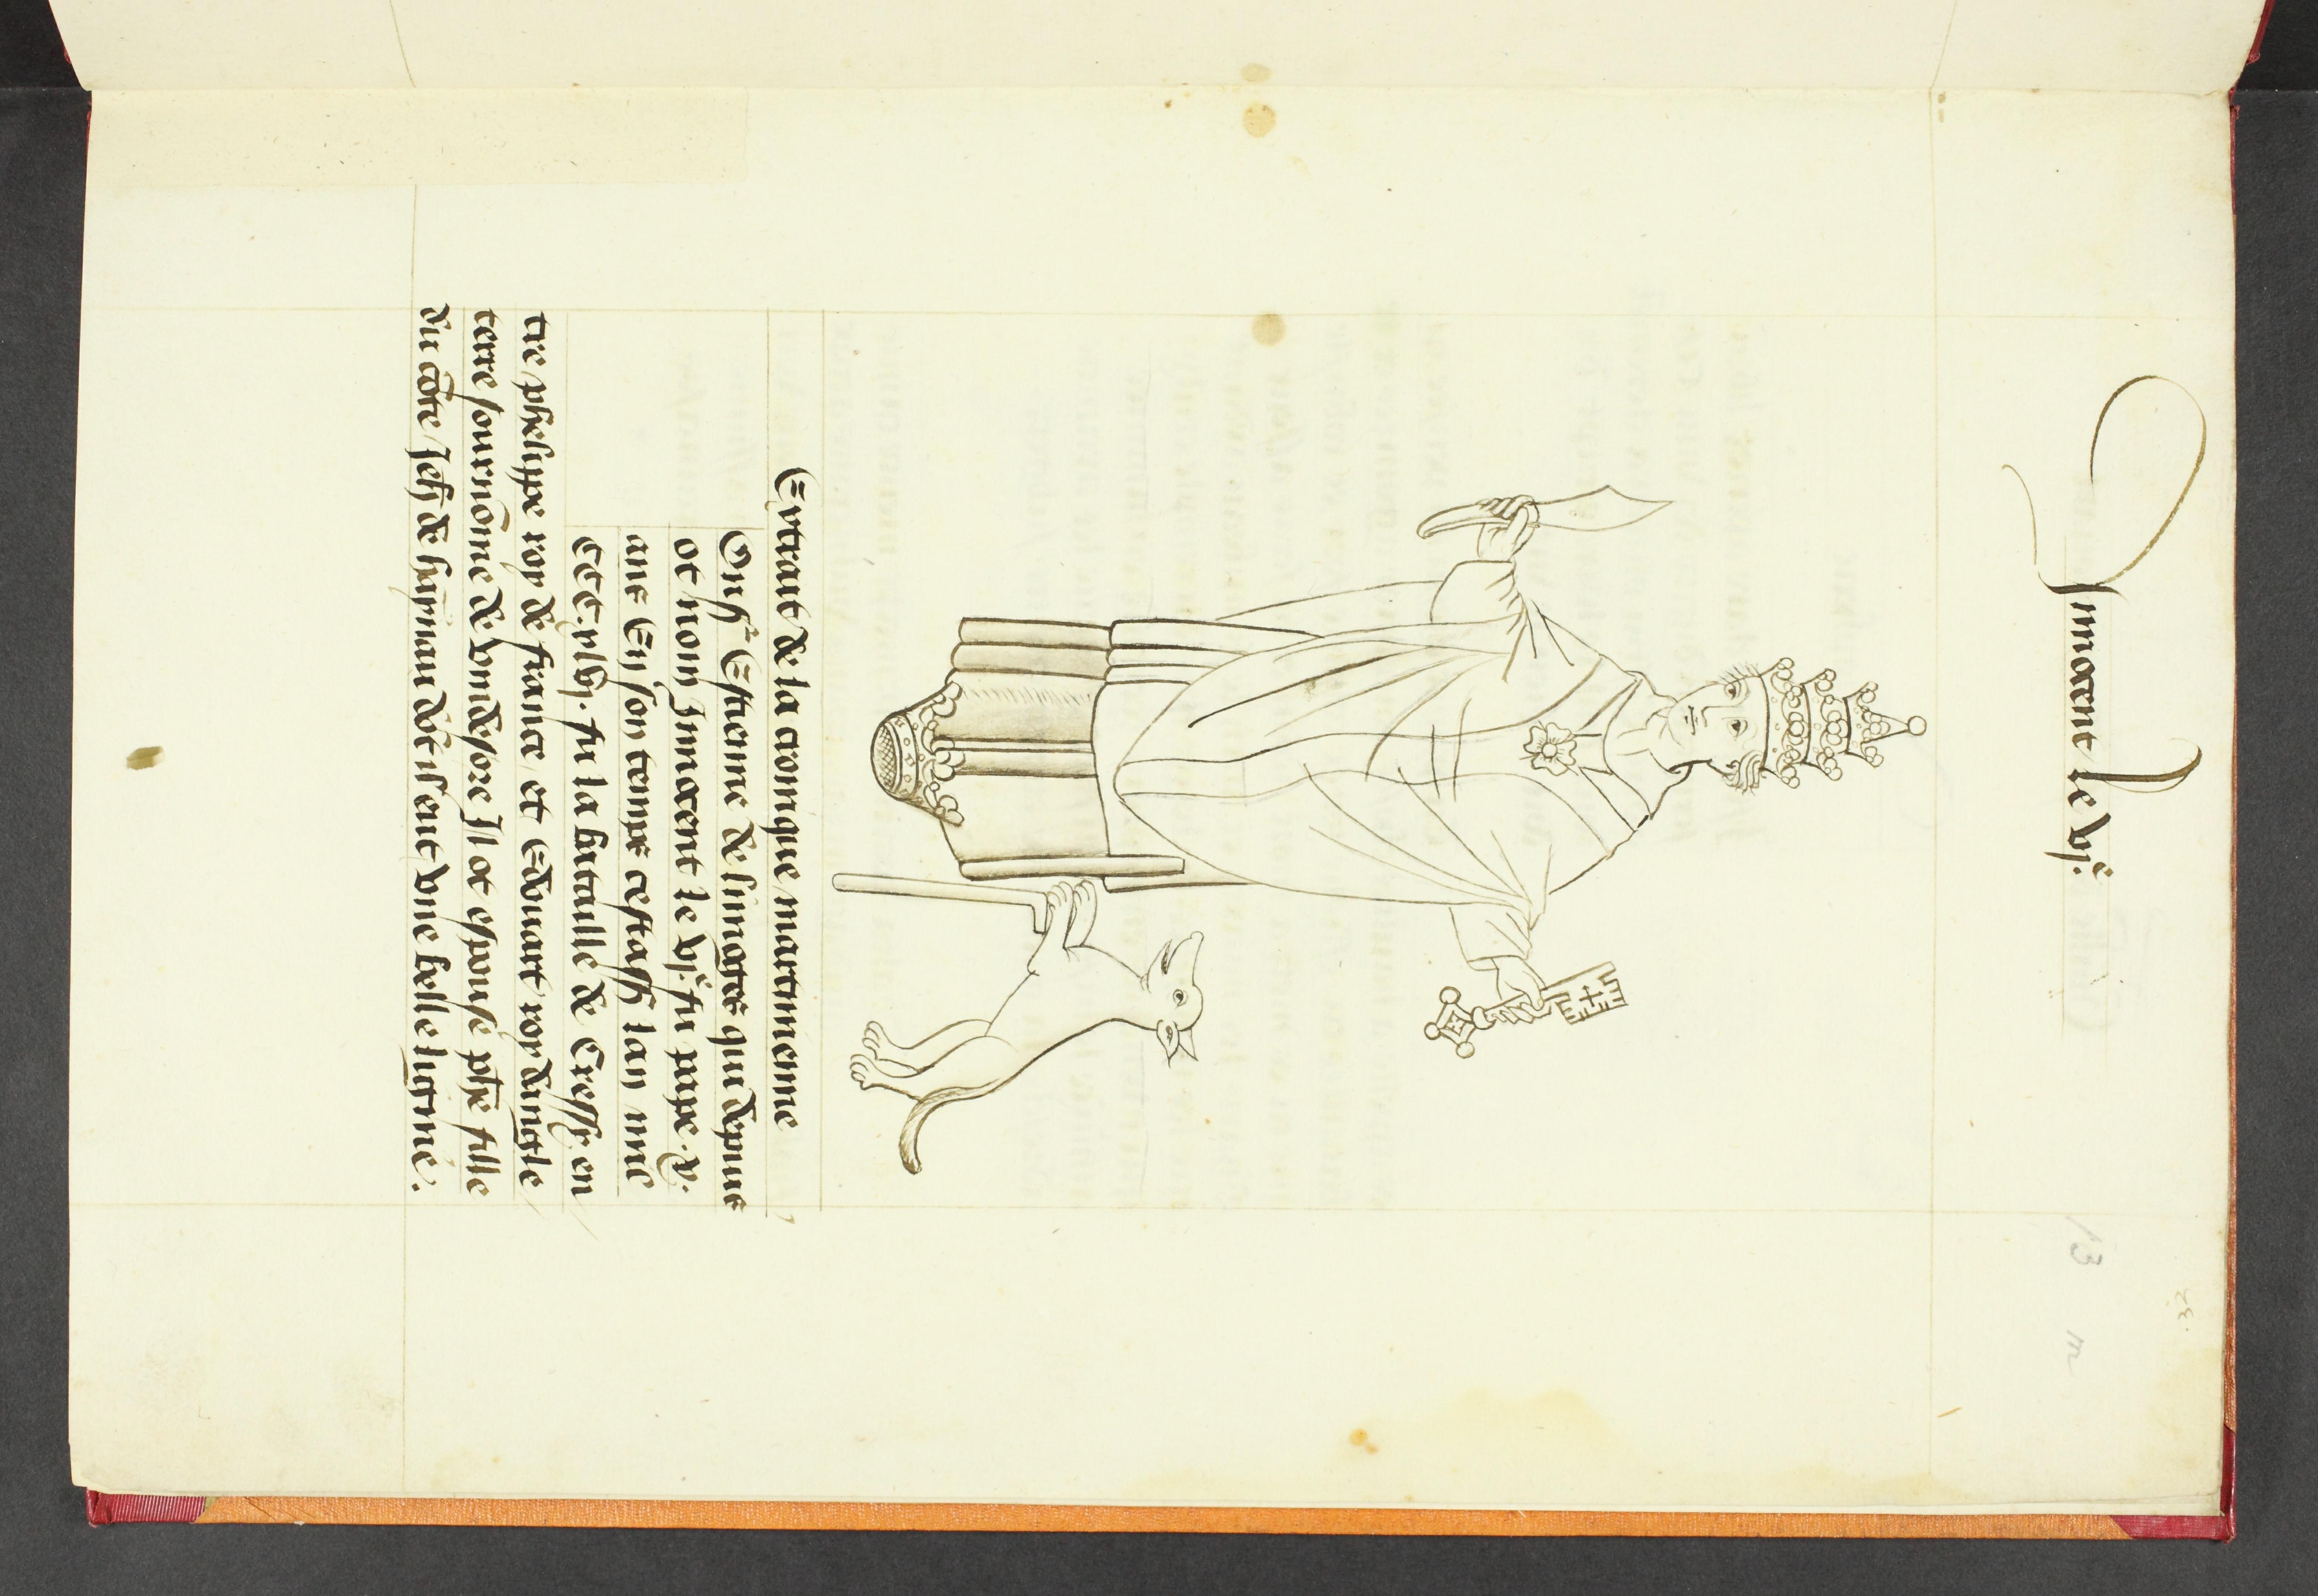 Innocent le vjᵉ.
13 m
32
Extrait de la cronique martinienne
Onsʳ Estienne de limoges qui depuis
ot nom Innocent le vjᵉ. fu pape .x.
ans En son temps cestass lan mil
ccc.xlvj. fu la bataille de Cressy, en
tre phelippe roy de france et Edouart roy dangle
terre sournōme de vindesore Il ot espouse phe fille
du cōte Jeh de haynau dōt il eut vne belle ligniē.